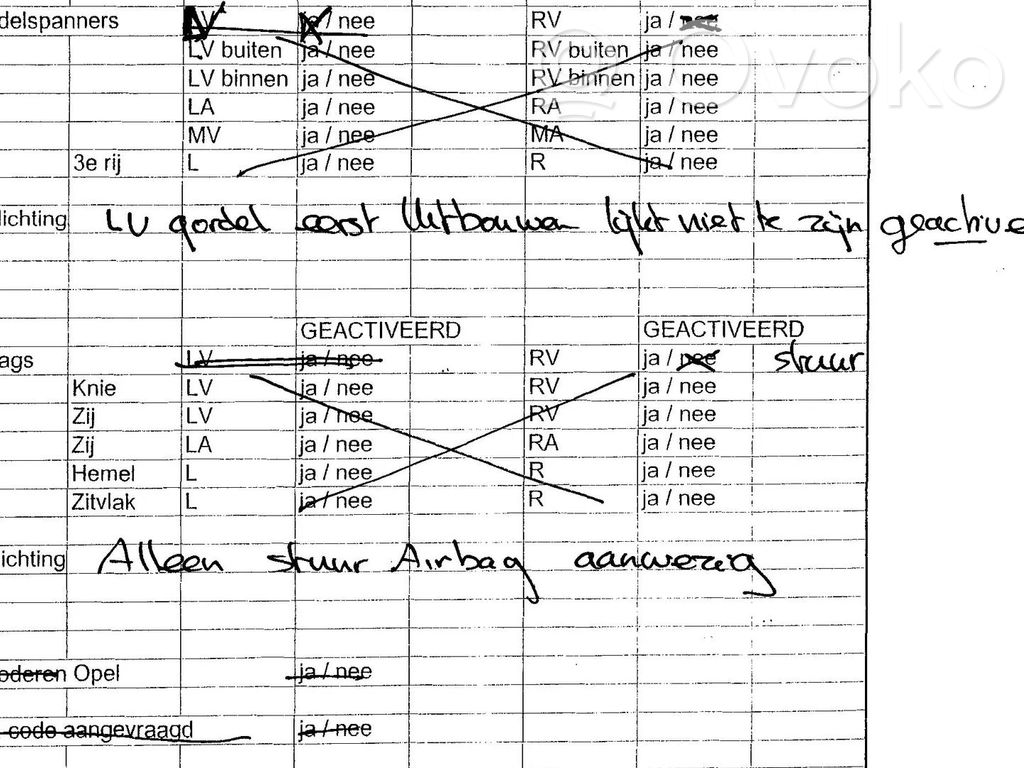 delspanners LV ja / nee RV ja / nee
LV buiten ja / nee RV buiten ja / nee
LV binnen ja / nee RV binnen ja / nee
LA ja / nee RA ja / nee
MV ja / nee MA ja / nee
3e rij L ja / nee R ja / nee
lichting LV gordel eerst Uitbouwen lijkt niet te zijn geactive
GEACTIVEERD GEACTIVEERD
ags LV ja / nee RV ja / nee stuur
Knie LV ja / nee RV ja / nee
Zij LV ja / nee RV ja / nee
Zij LA ja / nee RA ja / nee
Hemel L ja / nee R ja / nee
Zitvlak L ja / nee R ja / nee
lichting Alleen stuur Airbag aanwezig
oderen Opel ja / nee
code aangevraagd ja / nee
Ovoko